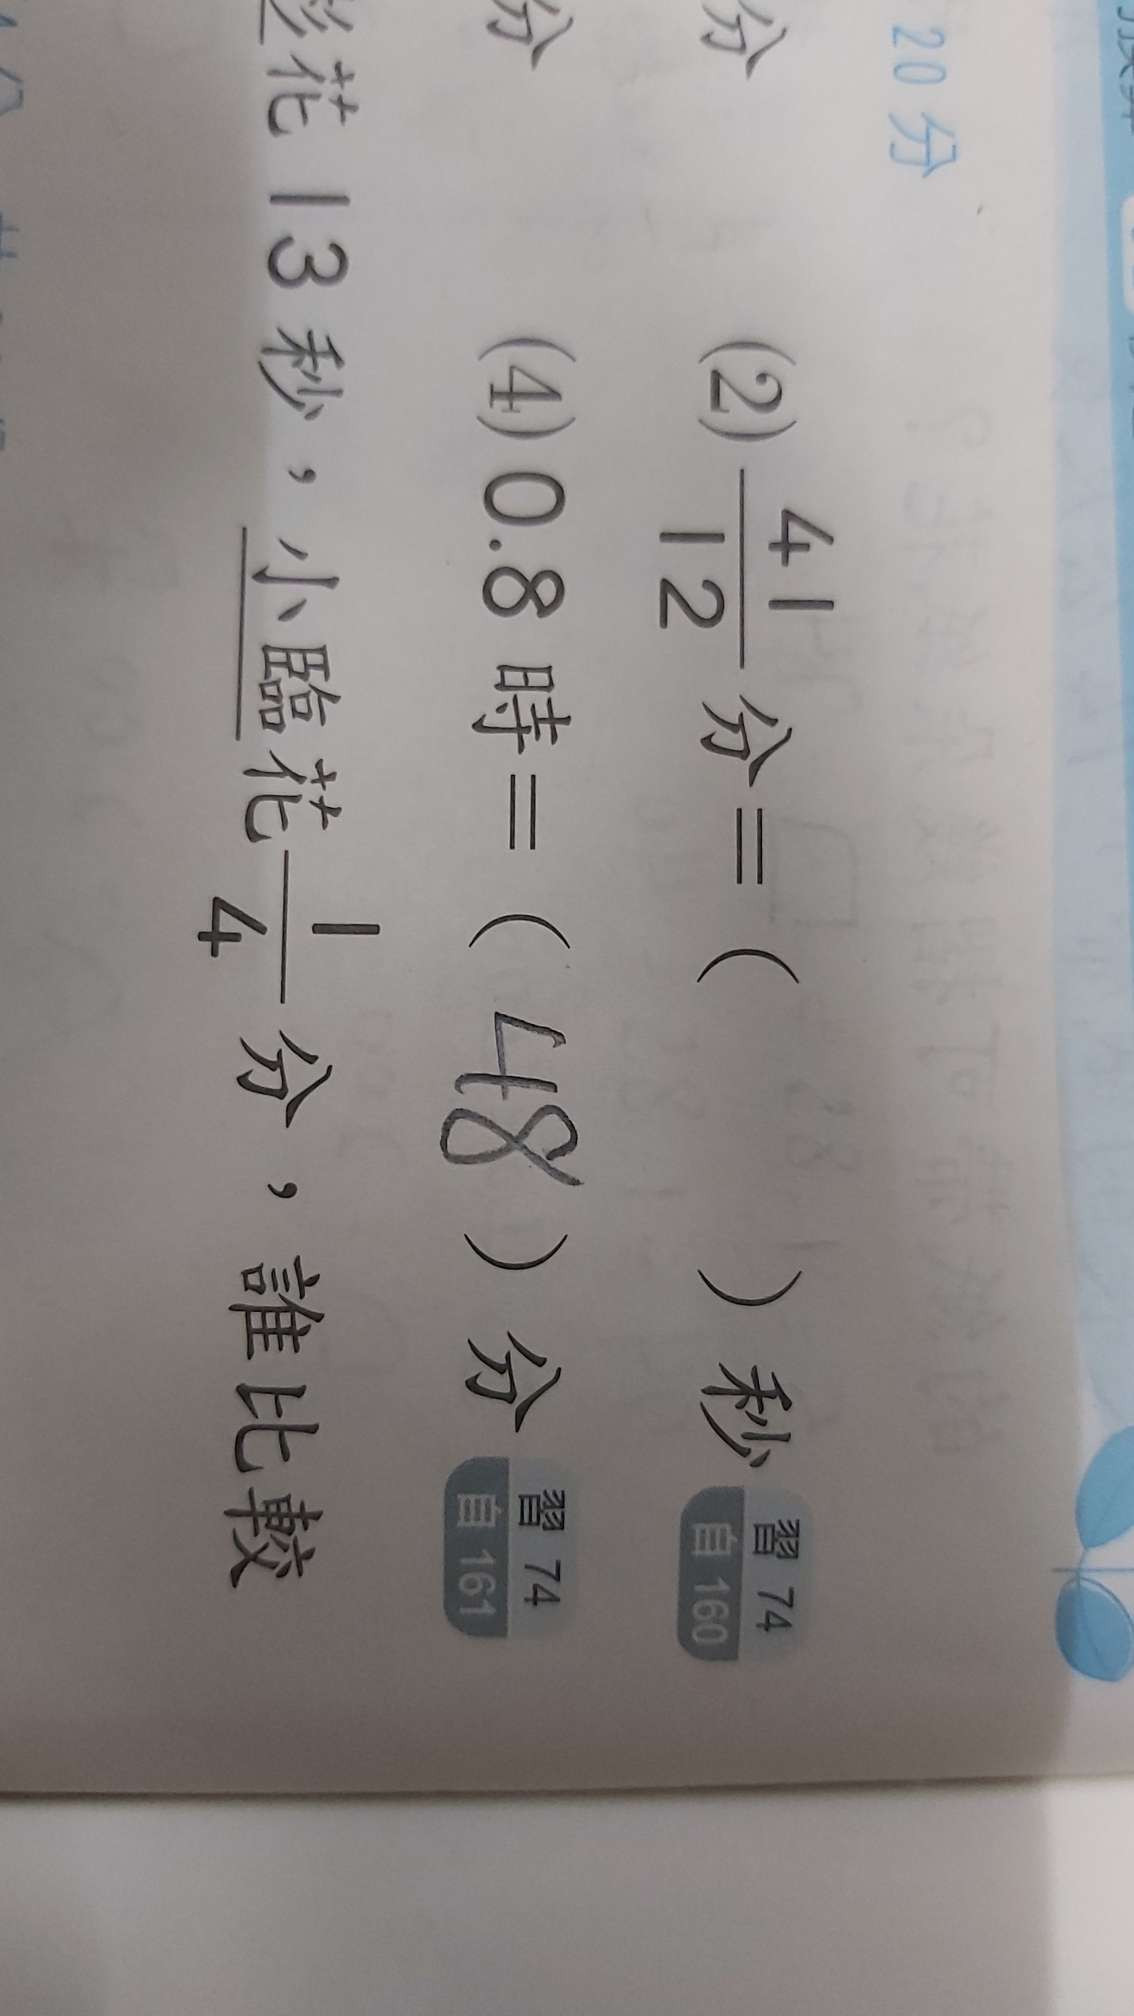 20 分
分 (2) 41/12 分=( )秒 習 74 自 160
分 (4) 0.8 時=( 48 )分 習 74 自 161
花 13 秒,小臨花 1/4 分,誰比較